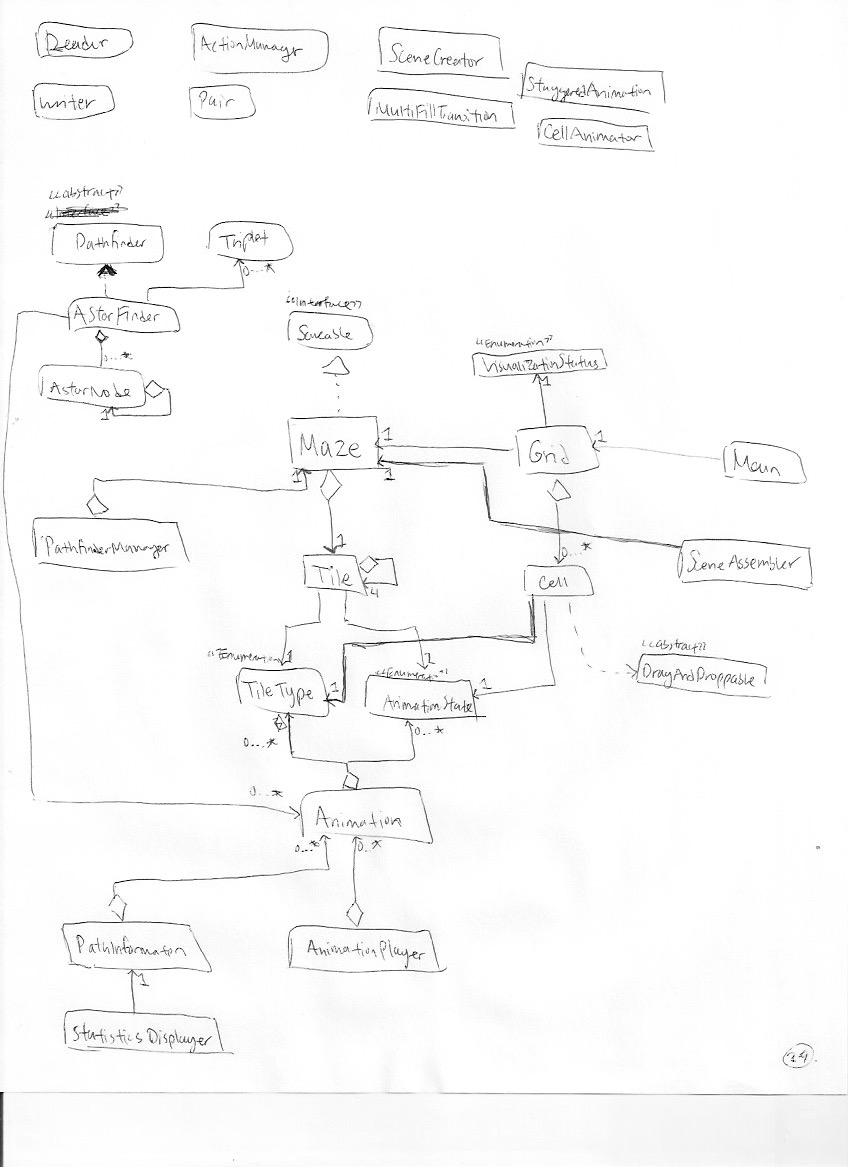 Reader
ActionManagr
SceneCreator
StaggeredAnimation
writer
Pair
MultiFillTranition
CellAnimator
<<abstract>>
Pathfinder
Triplet
AStarFinder
0...*
0...*
AstarNode
1
<<interface>>
Saveable
<<Enumeration>>
VisualizationStatus
1
Maze
1
1
1
Grid
1
Main
PathfinderManager
1
0...*
SceneAssembler
Tile
4
Cell
<<Enumeration>>
1
1
<<Enumerat>>
<<abstract>>
TileType
1
AnimationState
1
DragAndDroppable
0...*
0...*
0...*
Animation
0...*
0...*
PathInformation
AnimationPlayer
1
Statistics Displayer
24